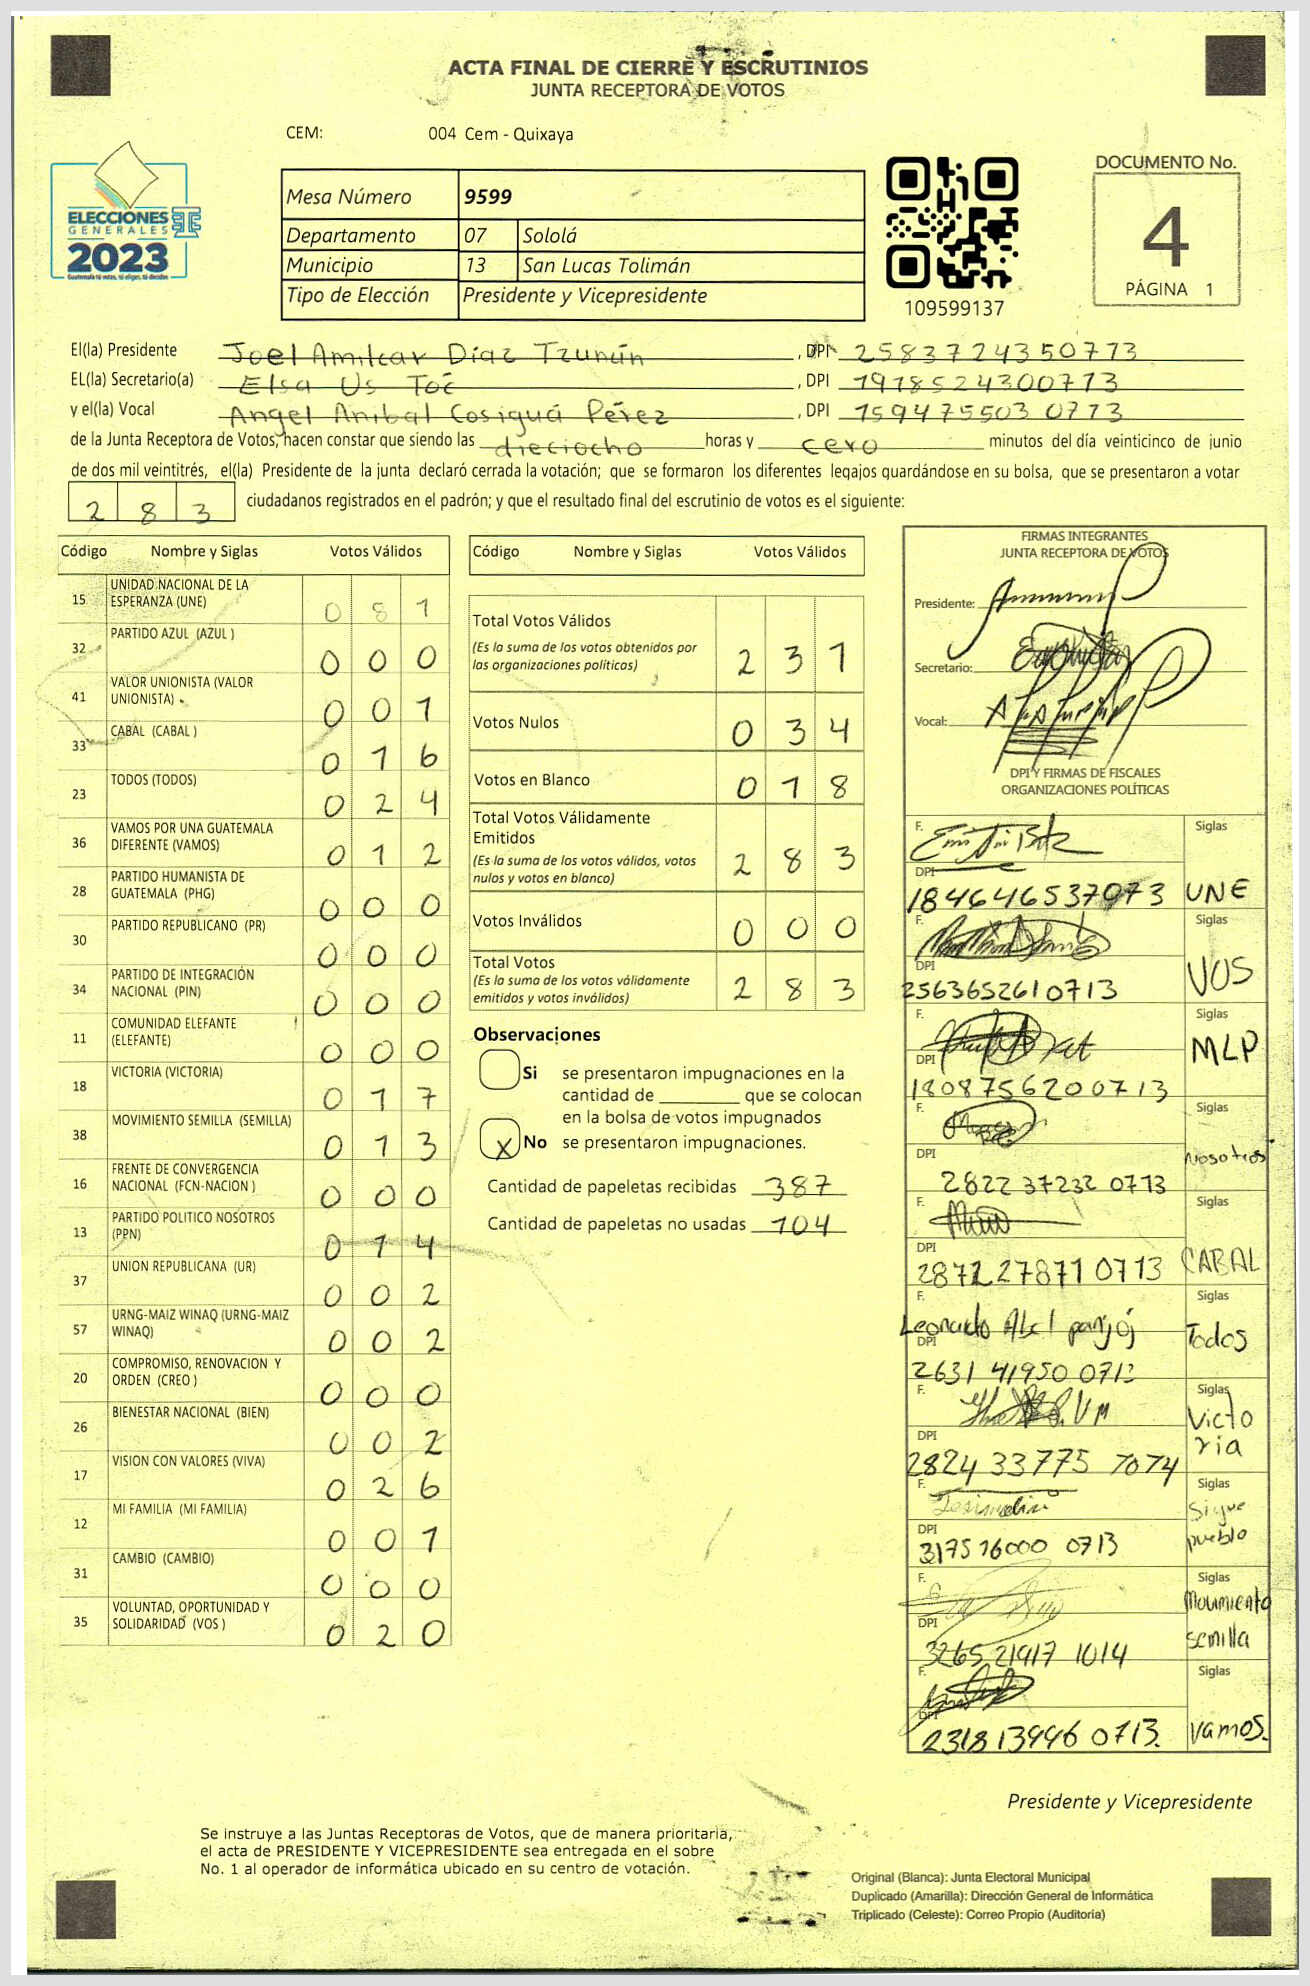 ACTA FINAL DE CIERRE Y ESCRUTINIOS
JUNTA RECEPTORA DE VOTOS
CEM: 004 Cem - Quixaya
ELECCIONES
GENERALES
2023
Guatemala tú votas, tú eliges, tú decides
Mesa Número 9599
Departamento 07 Sololá
Municipio 13 San Lucas Tolimán
Tipo de Elección Presidente y Vicepresidente
109599137
DOCUMENTO No.
4
PÁGINA 1
El(la) Presidente Joel Amilcar Díaz Tzunún , DPI 2583724350773
EL(la) Secretario(a) Elsa Us Toc , DPI 1918524300713
y el(la) Vocal Angel Anibal Cosiguá Pérez , DPI 159475503 0713
de la Junta Receptora de Votos, hacen constar que siendo las dieciocho horas y cero minutos del día veinticinco de junio
de dos mil veintitrés, el(la) Presidente de la junta declaró cerrada la votación; que se formaron los diferentes legajos guardándose en su bolsa, que se presentaron a votar
283 ciudadanos registrados en el padrón; y que el resultado final del escrutinio de votos es el siguiente:
Código Nombre y Siglas Votos Válidos
15 UNIDAD NACIONAL DE LA ESPERANZA (UNE) 081
32 PARTIDO AZUL (AZUL ) 000
41 VALOR UNIONISTA (VALOR UNIONISTA) 001
33 CABAL (CABAL ) 016
23 TODOS (TODOS) 024
36 VAMOS POR UNA GUATEMALA DIFERENTE (VAMOS) 012
28 PARTIDO HUMANISTA DE GUATEMALA (PHG) 000
30 PARTIDO REPUBLICANO (PR) 000
34 PARTIDO DE INTEGRACIÓN NACIONAL (PIN) 000
11 COMUNIDAD ELEFANTE (ELEFANTE) 000
18 VICTORIA (VICTORIA) 017
38 MOVIMIENTO SEMILLA (SEMILLA) 013
16 FRENTE DE CONVERGENCIA NACIONAL (FCN-NACION ) 000
13 PARTIDO POLITICO NOSOTROS (PPN) 014
37 UNION REPUBLICANA (UR) 002
57 URNG-MAIZ WINAQ (URNG-MAIZ WINAQ) 002
20 COMPROMISO, RENOVACION Y ORDEN (CREO ) 000
26 BIENESTAR NACIONAL (BIEN) 002
17 VISION CON VALORES (VIVA) 026
12 MI FAMILIA (MI FAMILIA) 001
31 CAMBIO (CAMBIO) 000
35 VOLUNTAD, OPORTUNIDAD Y SOLIDARIDAD (VOS ) 020
Código Nombre y Siglas Votos Válidos
Total Votos Válidos 231
(Es la suma de los votos obtenidos por
las organizaciones políticos)
Votos Nulos 034
Votos en Blanco 018
Total Votos Válidamente
Emitidos 283
(Es la suma de los votos válidos, votos
nulos y votos en blanco)
Votos Inválidos 000
Total Votos 283
(Es la suma de los votos válidamente
emitidos y votos inválidos)
Observaciones
Si se presentaron impugnaciones en la
cantidad de ________ que se colocan
en la bolsa de votos impugnados
X No se presentaron impugnaciones.
Cantidad de papeletas recibidas 387
Cantidad de papeletas no usadas 104
FIRMAS INTEGRANTES
JUNTA RECEPTORA DE VOTOS
Presidente:
Secretario:
Vocal:
DPI Y FIRMAS DE FISCALES
ORGANIZACIONES POLÍTICAS
F. Siglas
DPI
184646537073 UNE
F. Siglas
DPI VOS
2563652610713
F. Siglas
DPI MLP
1808756200713
F. Siglas
DPI Nosotros
2822 37232 0713
F. Siglas
DPI CABAL
2872 27871 0713
F. Siglas
Leonardo Abel panjoj Todos
DPI
2631 41950 0713
F. Siglas
DPI Victoria
2824 33775 7074
F. Siglas
DPI Sigue pueblo
3175 16000 0713
F. Siglas
DPI Movimiento semilla
3265 21917 1014
F. Siglas
DPI
2318 13996 0713. Vamos.
Presidente y Vicepresidente
Se instruye a las Juntas Receptoras de Votos, que de manera prioritaria,
el acta de PRESIDENTE Y VICEPRESIDENTE sea entregada en el sobre
No. 1 al operador de informática ubicado en su centro de votación.
Original (Blanca): Junta Electoral Municipal
Duplicado (Amarilla): Dirección General de Informática
Triplicado (Celeste): Correo Propio (Auditoría)